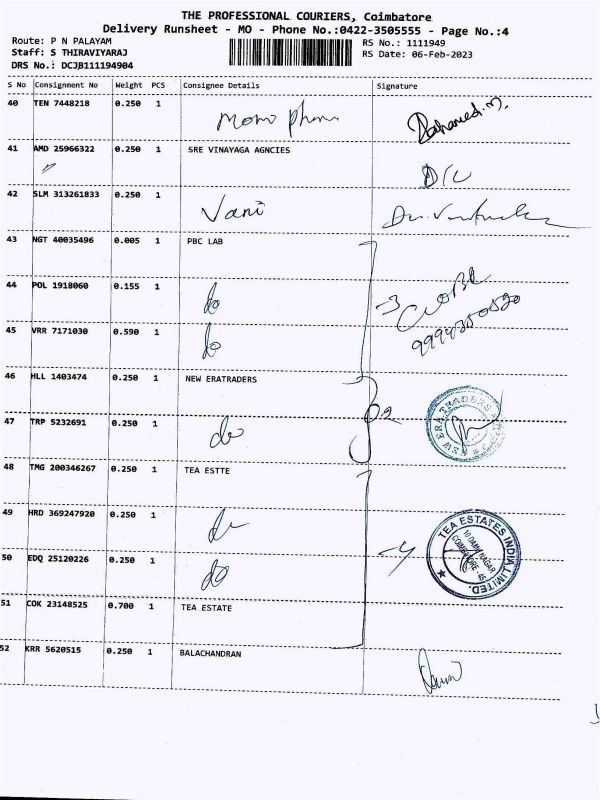 THE PROFESSIONAL COURIERS, Coimbatore
Delivery Runsheet - MO - Phone No.:0422-3505555 - Page No.:4
Route: P N PALAYAM
Staff: S THIRAVIYARAJ
DRS No.: DCJB111194904
RS No.: 1111949
RS Date: 06-Feb-2023
S No Consignment No Weight PCS Consignee Details Signature
40 TEN 7448218 0.250 1 Mono Phone Mahamed.M.
41 AMD 25966322 0.250 1 SRE VINAYAGA AGNCIES
42 SLM 313261833 0.250 1 Vani
43 NGT 40035496 0.005 1 PBC LAB
44 POL 1918060 0.155 1 do -3
45 VRR 7171030 0.590 1 do
46 HLL 1403474 0.250 1 NEW ERATRADERS
47 TRP 5232691 0.250 1 do NEW ERA TRADERS
48 TMG 200346267 0.250 1 TEA ESTTE
49 HRD 369247920 0.250 1 do
50 EDQ 25120226 0.250 1 do -4 TEA ESTATES INDIA LIMITED.
51 COK 23148525 0.700 1 TEA ESTATE
52 KRR 5620515 0.250 1 BALACHANDRAN